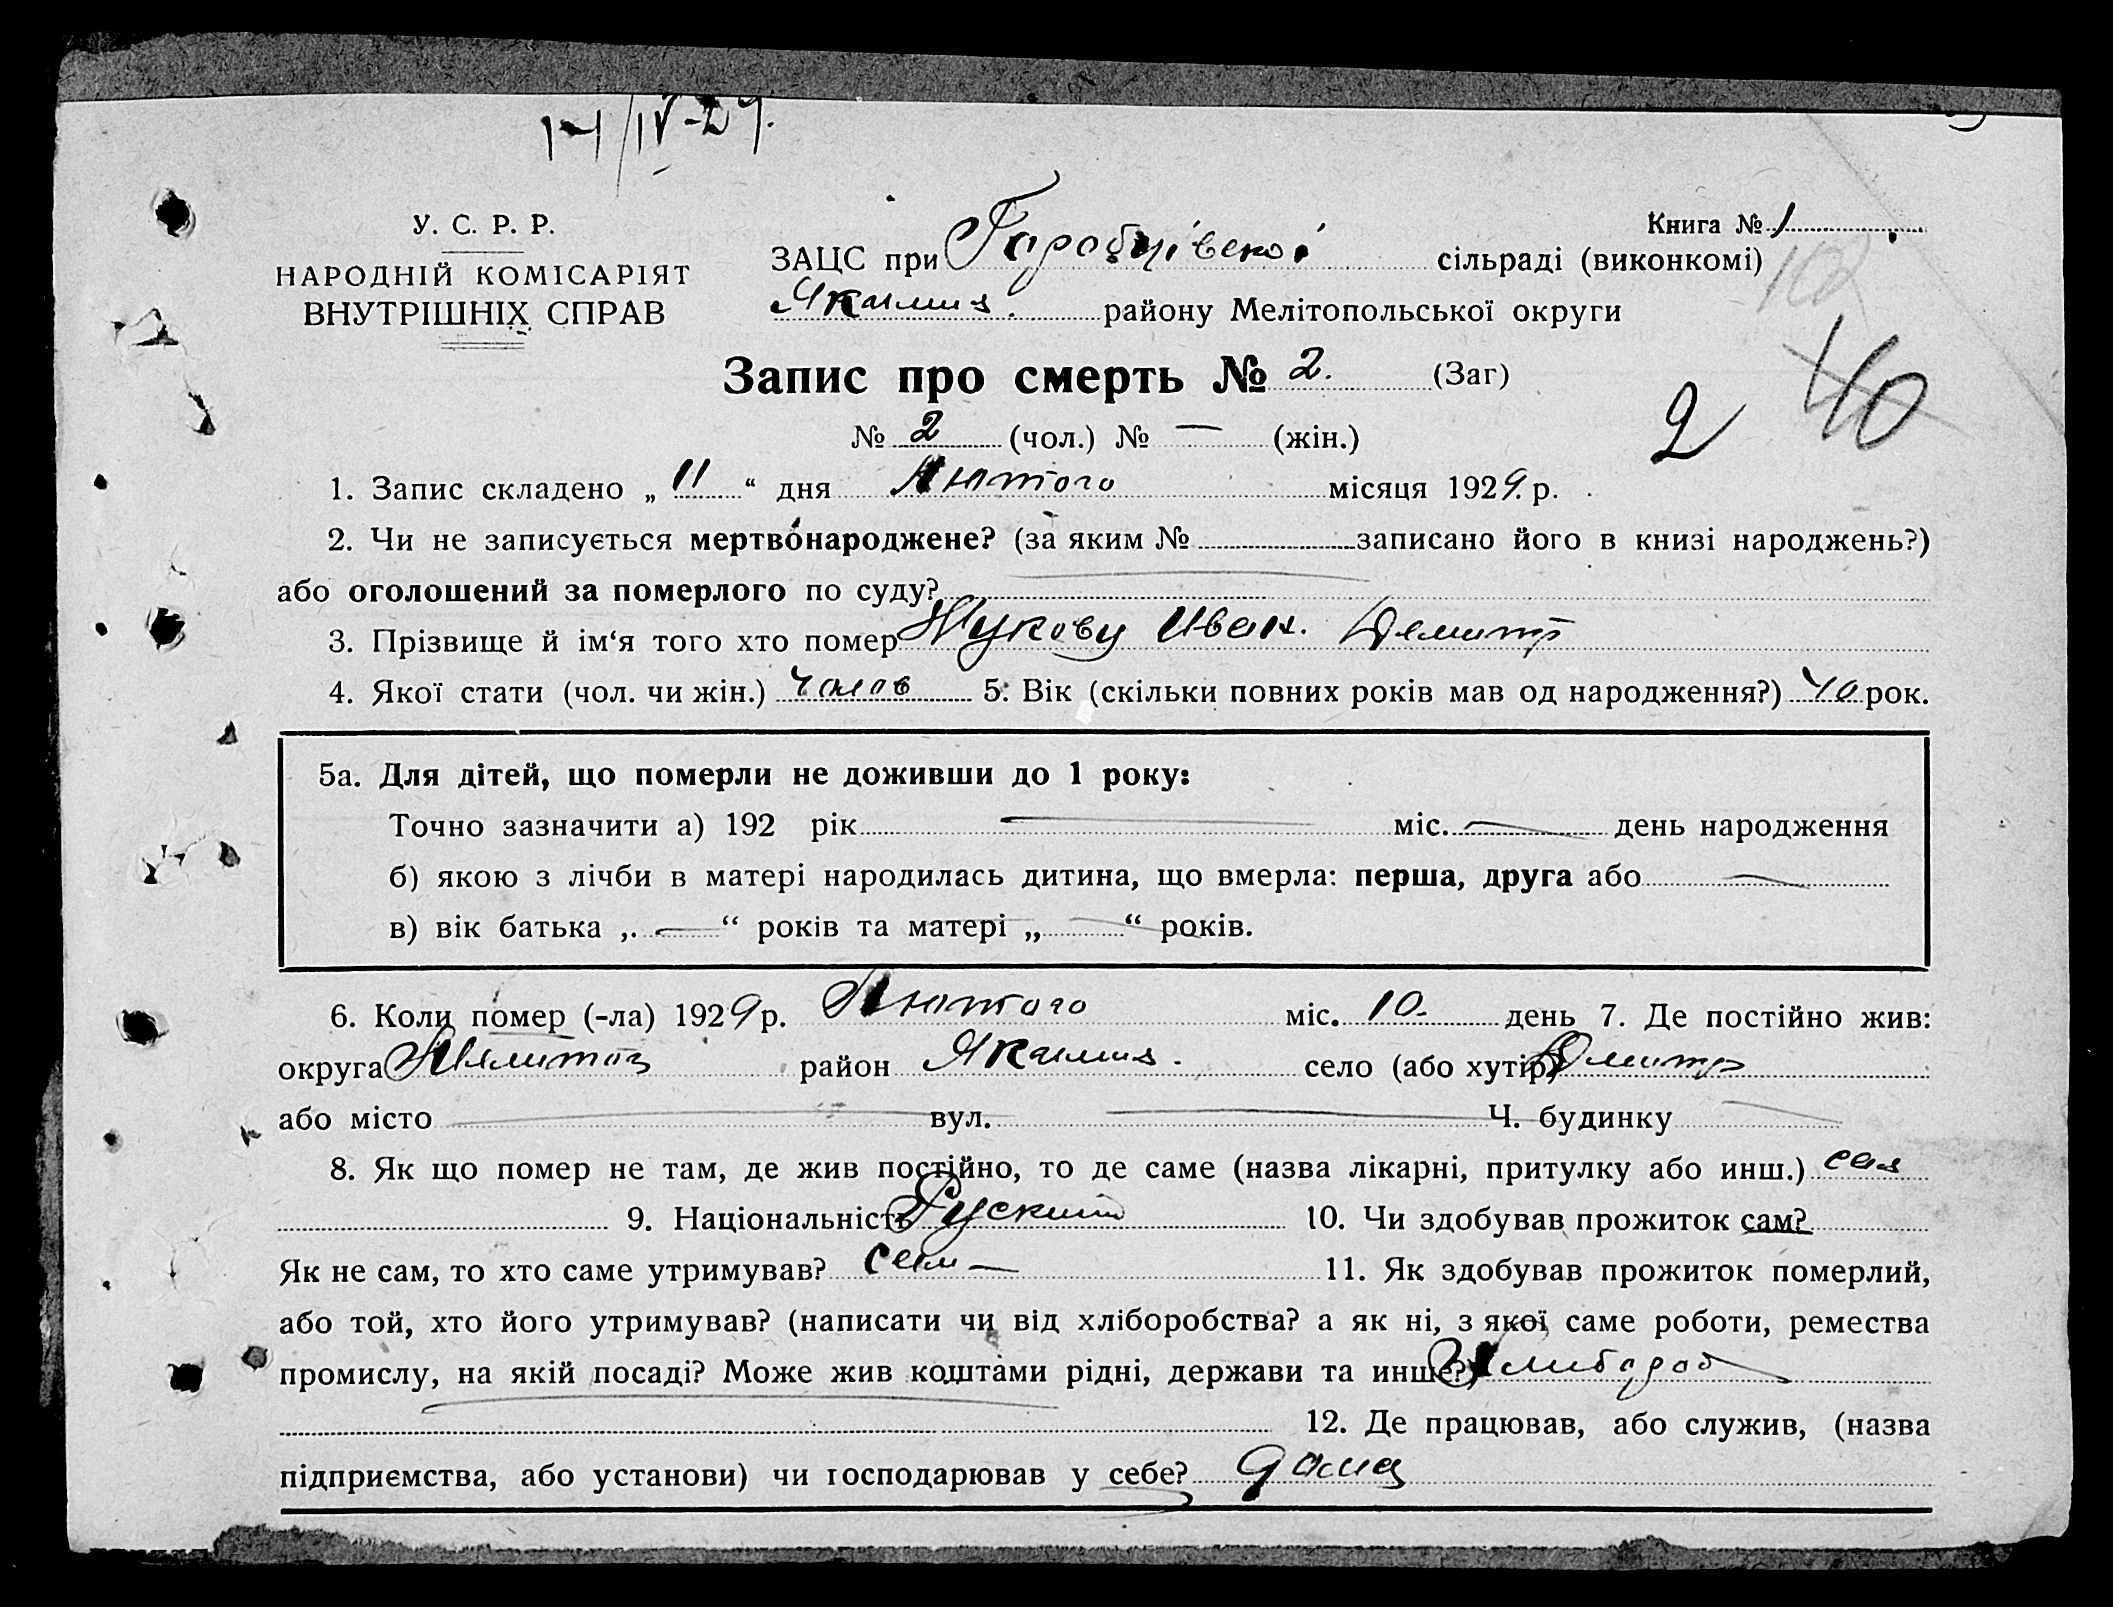 У. С. Р. Р.
НАРОДНІЙ КОМІСАРІЯТ
ВНУТРІШНІХ СПРАВ
Книга № 1
ЗАЦС при сільраді (виконкомі)
району Мелітопольської округи
102
Запис про смерть № 2. (Заг)
2 40
№ 2 (чол.) № — (жін.)
1. Запис складено „ 11 “ дня Лютого місяця 1929. р.
2. Чи не записується мертвонароджене? (за яким № записано його в книзі народжень?)
або оголошений за померлого по суду?
3. Прізвище й ім‘я того хто помер Жукову Иван. Демитр
4. Якої стати (чол. чи жін.) 5. Вік (скільки повних років мав од народження?) 40 рок.
5а. Для дітей, що померли не доживши до 1 року:
Точно зазначити а) 192 рік — міс. — день народження
б) якою з лічби в матері народилась дитина, що вмерла: перша, друга або —
в) вік батька „ — “ років та матері „ — “ років.
6. Коли помер (-ла) 1929 р. Лютого міс. 10. день 7. Де постійно жив:
округа район село (або хутір)
або місто — вул. — Ч. будинку —
8. Як що помер не там, де жив постійно, то де саме (назва лікарні, притулку або инш.)
9. Національність Руский 10. Чи здобував прожиток сам?
Як не сам, то хто саме утримував? сам — 11. Як здобував прожиток померлий,
або той, хто його утримував? (написати чи від хліборобства? а як ні, з якої саме роботи, ремества
промислу, на якій посаді? Може жив коштами рідні, держави та инше?)
12. Де працював, або служив, (назва
підприємства, або установи) чи господарював у себе? дома